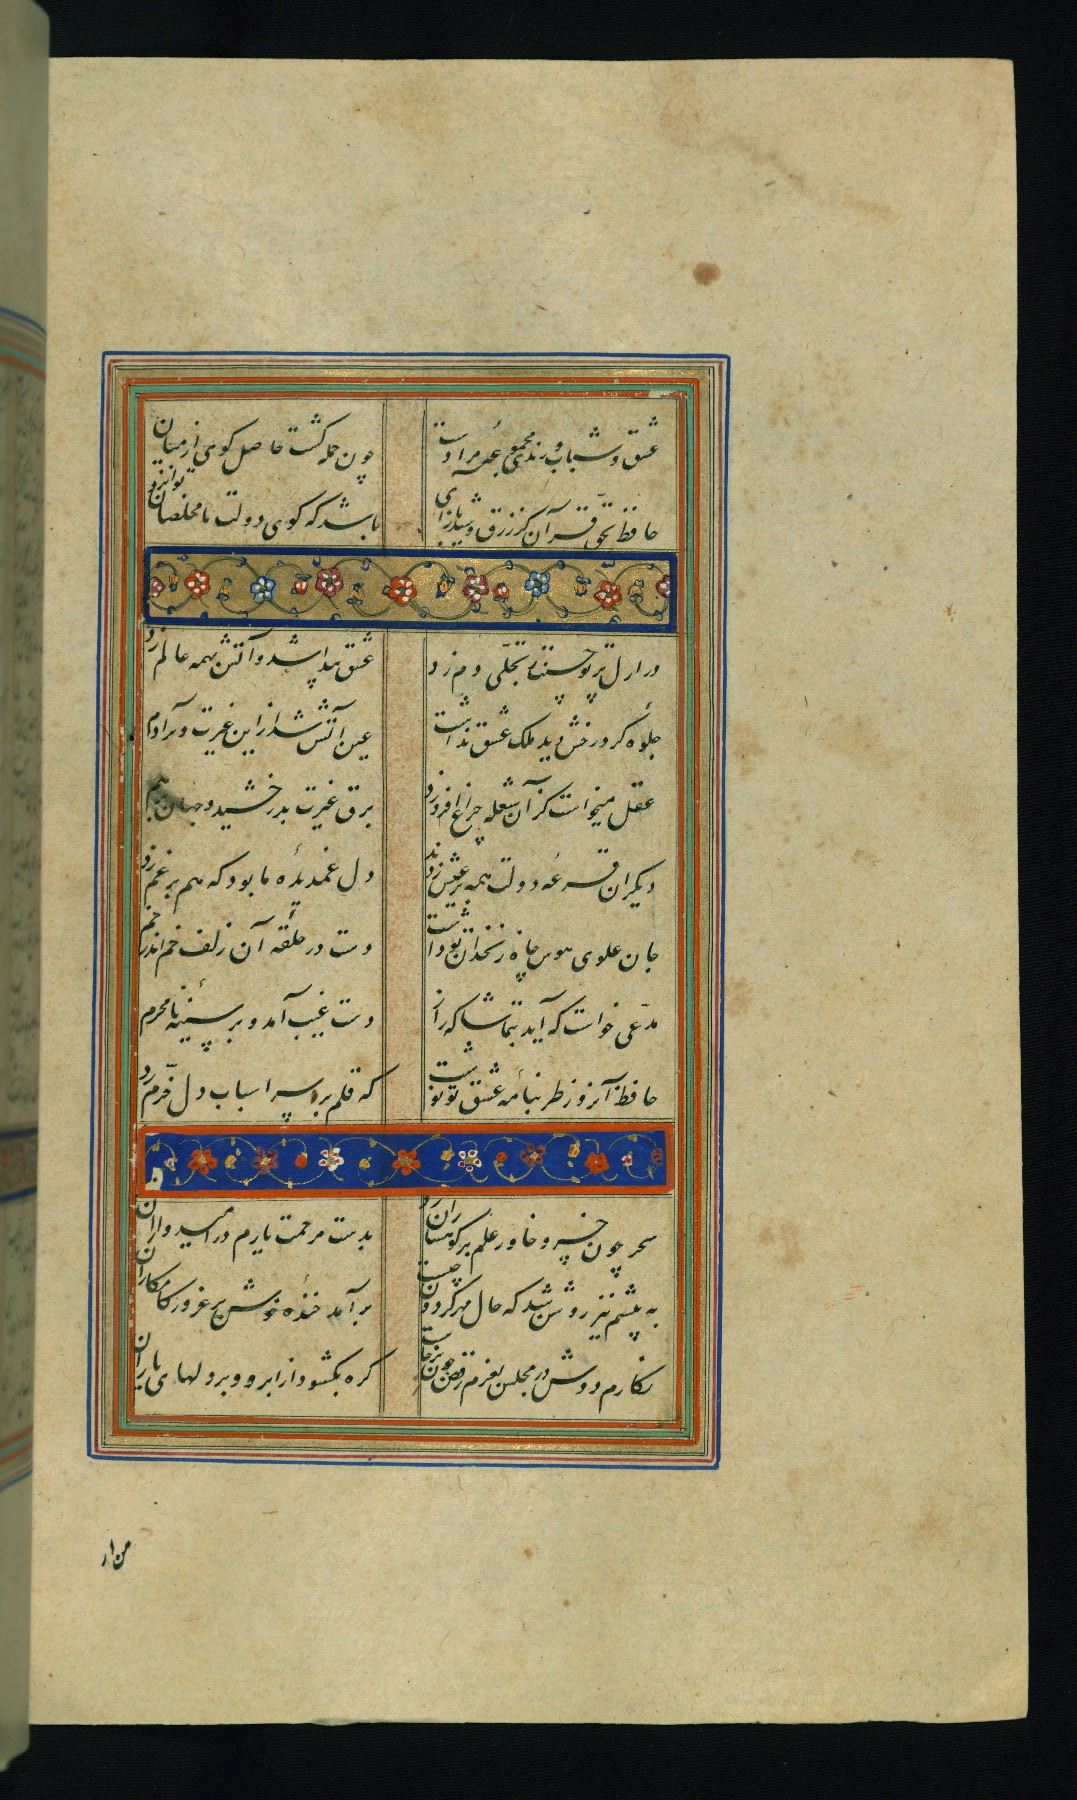 عشق و شباب و رندی مجموعهٔ مرادست
چون جمله گشت حاصل گوی از میان توان زد
حافظ بحقّ قرآن کز زرق و شید باز آی
باشد که گوی دولت با مخلصان
در ازل پرتو حسنت ز تجلّی دم زد
عشق پیدا شد و آتش بهمه عالم زد
جلوهٔ کرد رخش دید ملک عشق نداشت
عین آتش شد ازین غیرت و بر آدم
عقل میخواست کز آن شعله چراغ افروزد
برق غیرت بدرخشید و جهان بر هم
دیگران قرعهٔ دولت همه بر عیش زدند
دل غمدیدهٔ ما بود که هم بر غم زد
جان علوی هوس چاه زنخدان تو داشت
دست در حلقهٔ آن زلف خم اندر خم
مدّعی خواست که آید بتماشاگه راز
دست غیب آمد و بر سینهٔ نامحرم
حافظ آنروز طربنامهٔ عشق تو نوشت
که قلم بر سر اسباب دل خرّم زد
سحر چون خسرو خاور علم بر کوهساران زد
بدست مرحمت یارم در امیدواران
به پیشم نیز روشن شد که حال مهر گردون چیست
برآمد خندهٔ خوش بر غرور کامکاران
نگارم دوش در مجلس بعزم رقص چون برخاست
گره بگشود از ابرو و بر دلهای یاران
من از